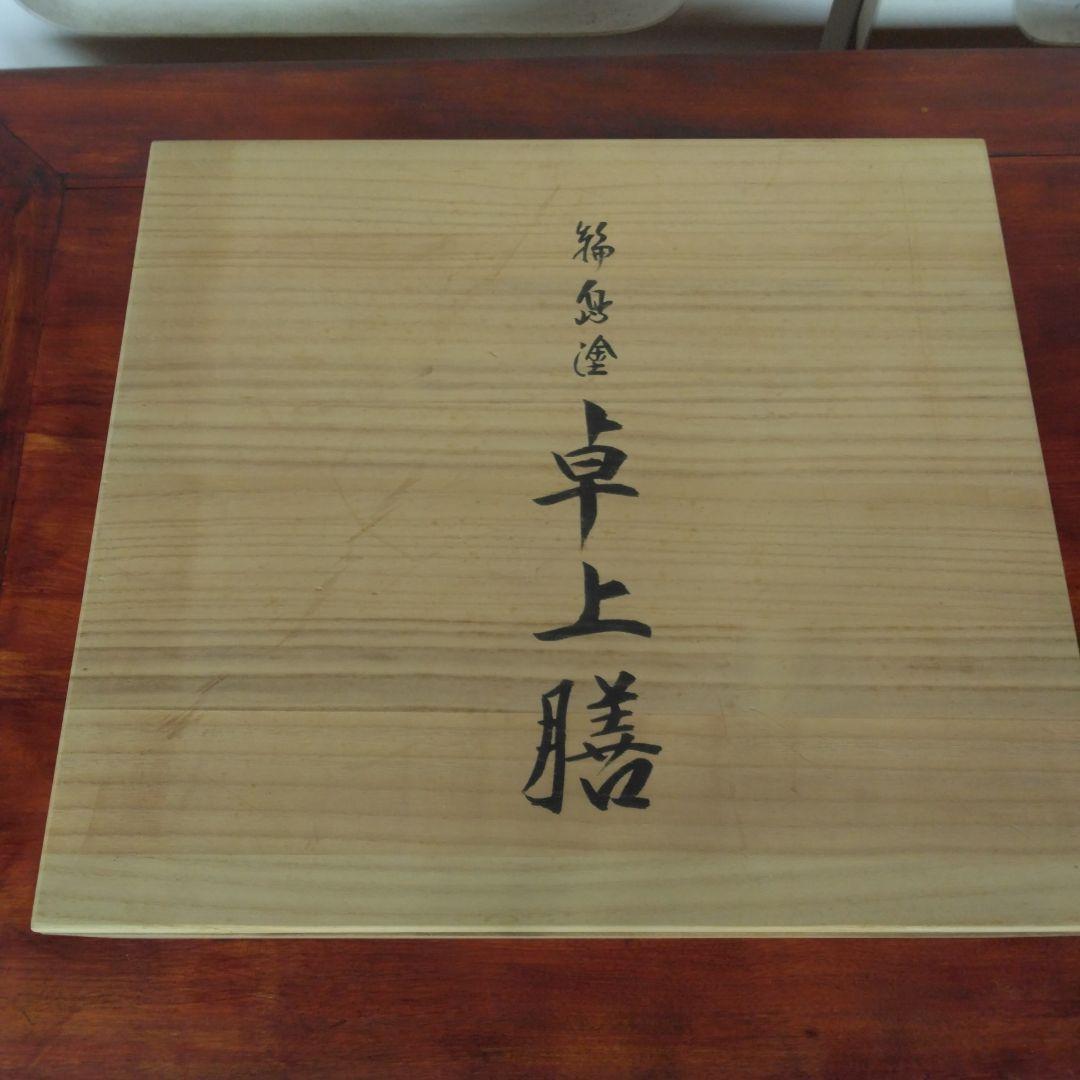 輪島塗 卓上膳